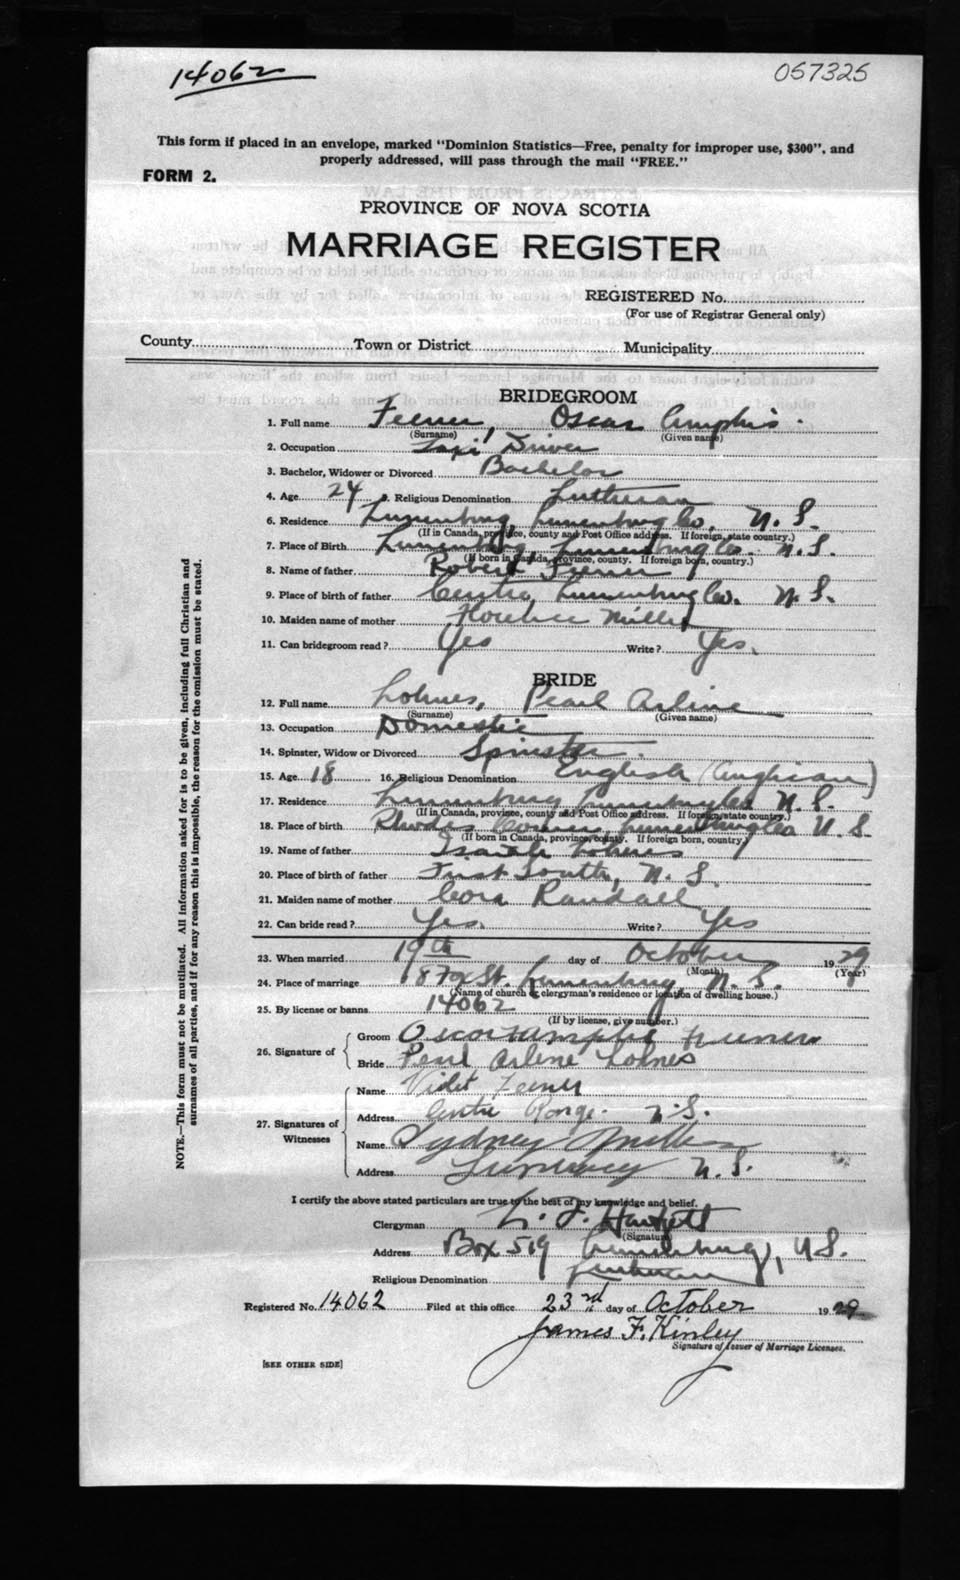 14062 057325
This form if placed in an envelope, marked "Dominion Statistics—Free, penalty for improper use, $300", and
properly addressed, will pass through the mail "FREE."
FORM 2.
PROVINCE OF NOVA SCOTIA
MARRIAGE REGISTER
REGISTERED No.
(For use of Registrar General only)
County Town or District Municipality
BRIDEGROOM
1. Full name Feener, Oscar
(Surname) (Given name)
2. Occupation Taxi Driver
3. Bachelor, Widower or Divorced Bachelor
4. Age 24 5. Religious Denomination Lutheran
6. Residence Lunenburg, Lunenburg Co. N. S.
(If in Canada, province, county and Post Office address. If foreign, state country.)
7. Place of Birth Lunenburg, Lunenburg Co. N. S.
(If born in Canada, province, county. If foreign born, country.)
8. Name of father Robert Feener
9. Place of birth of father Centre, Lunenburg Co. N. S.
10. Maiden name of mother Florence Miller
11. Can bridegroom read? Yes Write? Yes.
BRIDE
12. Full name Lohnes, Pearl Arline
(Surname) (Given name)
13. Occupation Domestic
14. Spinster, Widow or Divorced Spinster.
15. Age 18 16. Religious Denomination English (Anglican)
17. Residence Lunenburg Lunenburg Co N. S.
(If in Canada, province, county and Post Office address. If foreign, state country.)
18. Place of birth Rhodes Corner, Lunenburg Co N. S.
(If born in Canada, province, county. If foreign born, country.)
19. Name of father Lohnes
20. Place of birth of father First South, N. S.
21. Maiden name of mother Cora Randall
22. Can bride read? Yes. Write? Yes
23. When married 19th day of October 1929
(Month) (Year)
24. Place of marriage 187 Fox St. Lunenburg, N. S.
(Name of church or clergyman's residence or location of dwelling house.)
25. By license or banns 14062
(If by license, give number.)
26. Signature of Groom Oscar Feener
Bride Pearl Arlene Lohnes
27. Signatures of Witnesses Name Violet Feener
Address Centre Range. N. S.
Name Sydney
Address N. S.
I certify the above stated particulars are true to the best of my knowledge and belief.
Clergyman
(Signature)
Address Box 519 Lunenburg, N. S.
Religious Denomination Lutheran
Registered No. 14062 Filed at this office 23rd day of October 1929
James F. Kinley
Signature of Issuer of Marriage Licenses.
[SEE OTHER SIDE]
NOTE.—This form must not be mutilated. All information asked for is to be given, including full Christian and
surnames of all parties, and if for any reason this is impossible, the reason for the omission must be stated.